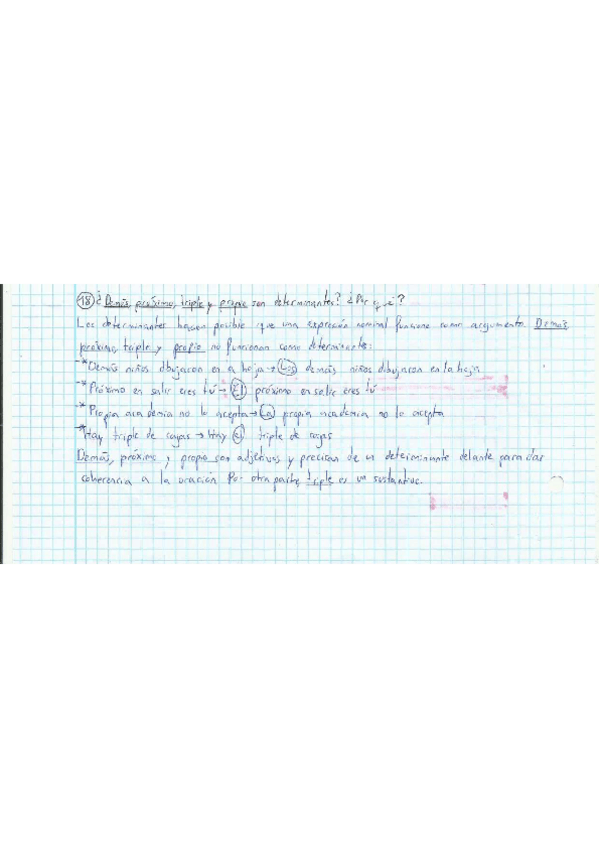 18 ¿Demás, próximo, triple y propio son determinantes? ¿Por qué?
Los determinantes hacen posible que una expresión nominal funcione como argumento. Demás,
próximo, triple y propio no funcionan como determinantes:
-*Demás niños dibujaron en la hoja → Los demás niños dibujaron en la hoja
-*Próximo en salir eres tú → El próximo en salir eres tú
*Propia academia no lo acepta → La propia academia no lo acepta
*Hay triple de cajas → Hay el triple de cajas
Demás, próximo y propio son adjetivos y precisan de un determinante delante para dar
coherencia a la oración. Por otra parte, triple es un sustantivo.